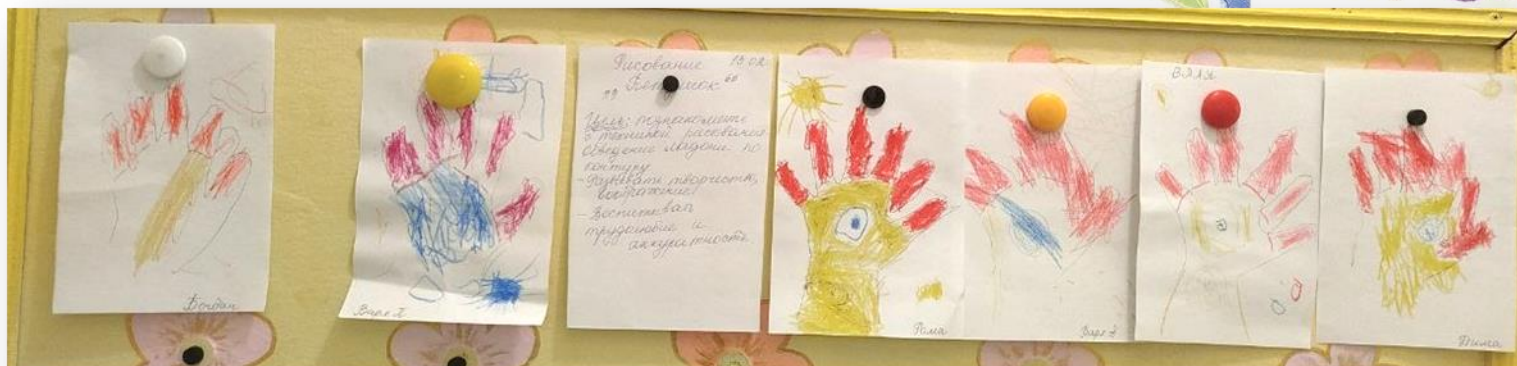 Богдан
Варя Л
Рисование 19.02
„Петушок“
Цель: познакомить
с техникой рисования
обведение ладони по
контуру
- Развивать творчество,
воображение.
- Воспитывать
трудолюбие и
аккуратность
Рома
Варя
ВАЛЯ
Тима